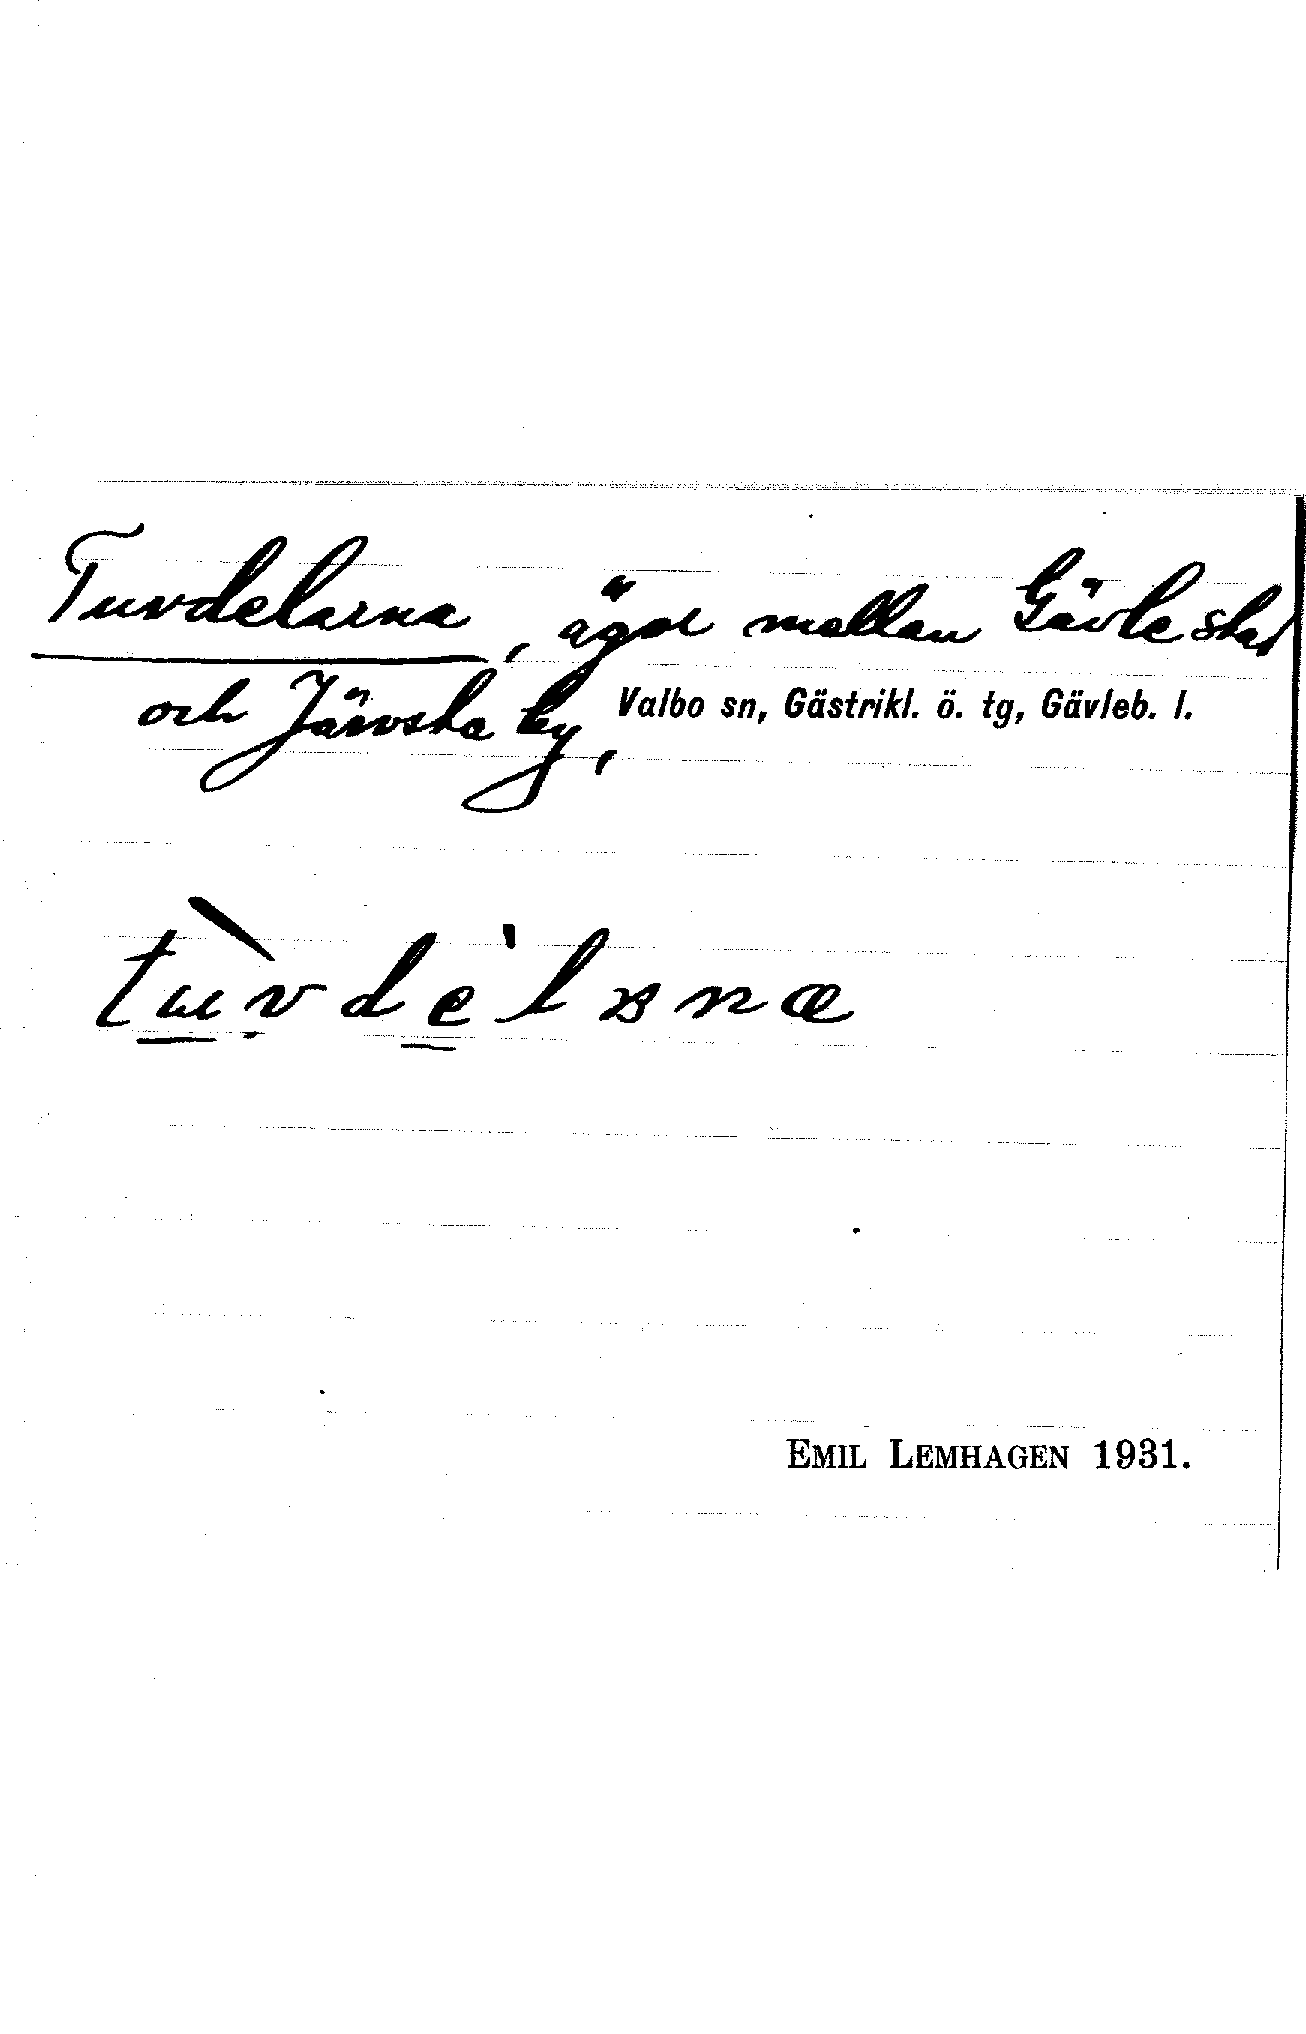 Tuvdelarna, ägor mellan Gävle stad
och Järvsta by, Valbo sn, Gästrikl. ö. tg, Gävleb. l.
EMIL LEMHAGEN 1931.